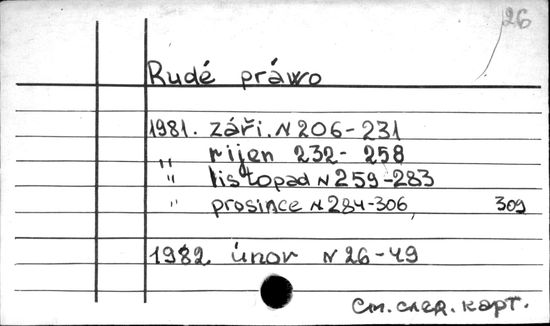 26
Rudé práwo
1981. září. N 206-231
„ rijen 232- 258
" listopad N 259-283
" prosince N 284-306, 309
1982. únor N 26-49
См. след. карт.